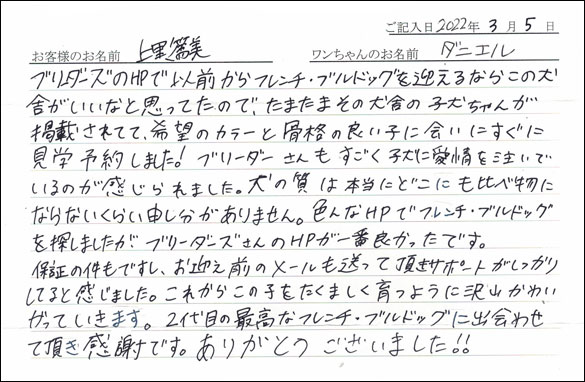 ご記入日 2022年 3月 5日
お客様のお名前 上里篤美 ワンちゃんのお名前 ダニエル
ブリーダーズのHPで以前からフレンチ・ブルドッグを迎えるならこの犬
舎がいいなと思ってたので、たまたまその犬舎の子犬ちゃんが
掲載されてて、希望のカラーと骨格の良い子に会いにすぐに
見学予約しました! ブリーダーさんもすごく子犬に愛情を注いで
いるのが感じられました。犬の質は本当にどこにも比べ物に
ならないくらい申し分がありません。色んなHPでフレンチ・ブルドッグ
を探しましたがブリーダーズさんのHPが一番良かったです。
保証の件もですし、お迎え前のメールも送って頂きサポートがしっかり
してると感じました。これからこの子をたくましく育つように沢山かわい
がっていきます。2代目の最高なフレンチ・ブルドッグに出会わせ
て頂き感謝です。ありがとうございました!!